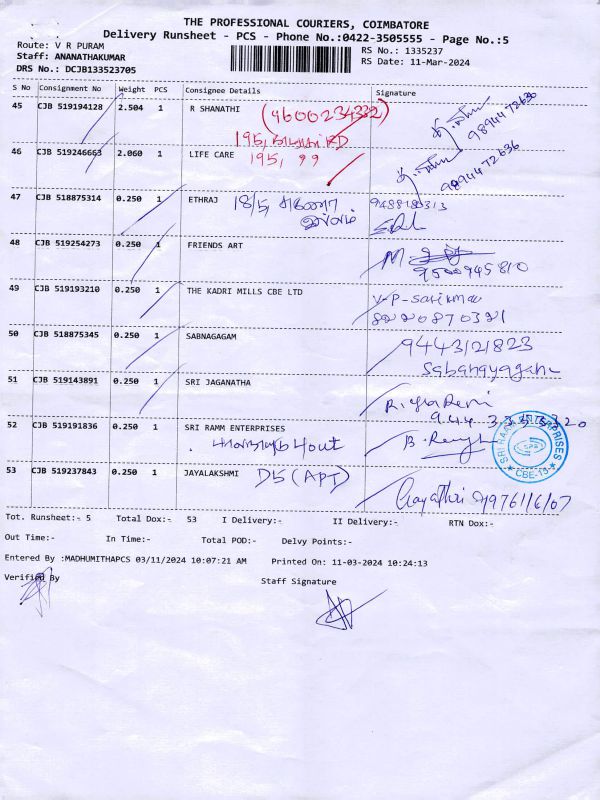 THE PROFESSIONAL COURIERS, COIMBATORE
Delivery Runsheet - PCS - Phone No.:0422-3505555 - Page No.:5
Route: V R PURAM
Staff: ANANATHAKUMAR
DRS No.: DCJB133523705
RS No.: 1335237
RS Date: 11-Mar-2024
S No Consignment No Weight PCS Consignee Details Signature
45 CJB 519194128 2.504 1 R SHANATHI (9600234332)
195, RD
9894472636
46 CJB 519246663 2.060 1 LIFE CARE 195, 99
9894472636
47 CJB 518875314 0.250 1 ETHRAJ 18/5,
48 CJB 519254273 0.250 1 FRIENDS ART
9500945810
49 CJB 519193210 0.250 1 THE KADRI MILLS CBE LTD V-P-Sasikumar
8220870321
50 CJB 518875345 0.250 1 SABNAGAGAM 9443121823
Sabanayagam
51 CJB 519143891 0.250 1 SRI JAGANATHA
52 CJB 519191836 0.250 1 SRI RAMM ENTERPRISES
4out
SRI RAAM ENTERPRISES
CBE-15
53 CJB 519237843 0.250 1 JAYALAKSHMI D5 (APT) Gayathri
Tot. Runsheet:- 5 Total Dox:- 53 I Delivery:- II Delivery:- RTN Dox:-
Out Time:- In Time:- Total POD:- Delvy Points:-
Entered By :MADHUMITHAPCS 03/11/2024 10:07:21 AM Printed On: 11-03-2024 10:24:13
Verified By Staff Signature